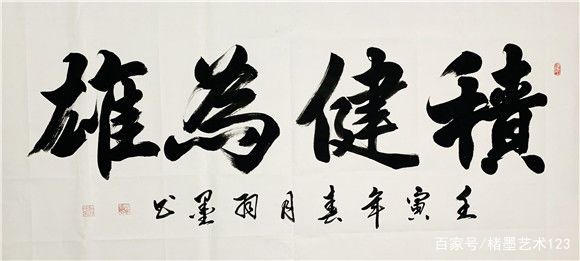 積健為雄
壬寅年春月墨书
百家号/楮墨艺术123